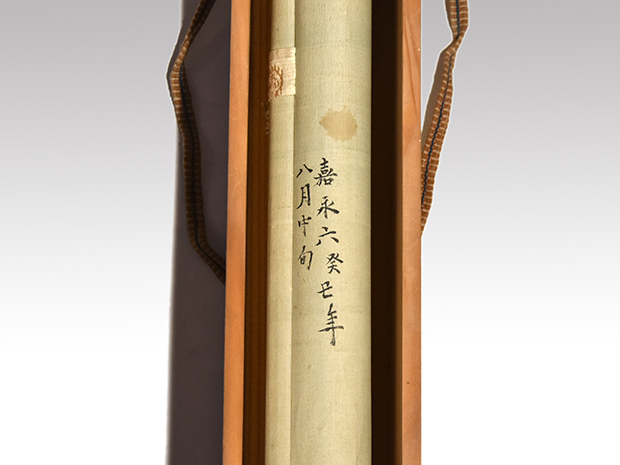 嘉永六癸丑年
八月中旬